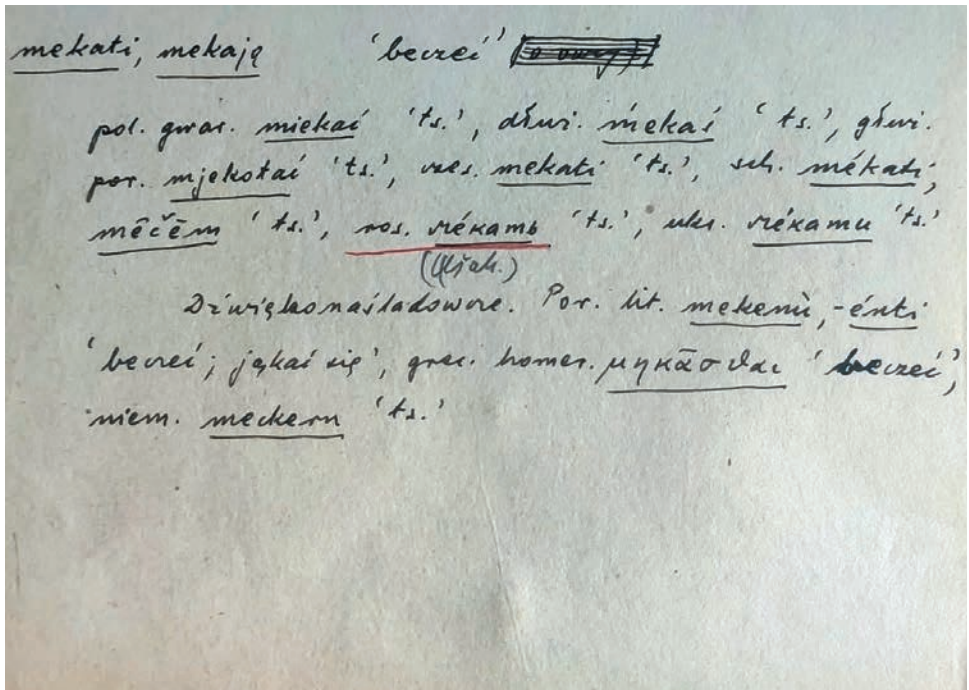 mekati, mekają 'beczeć'
pol. gwar. miekać 'ts.', dłuż. ḿekaś 'ts.', głuż.
por. mjekotać 'ts.', czes. mekati 'ts.', sch. mékati,
mēčēm 'ts.', ros. мékamь 'ts.', ukr. мékamu 'ts.'
Dźwiękonaśladowcze. Por. lit. mekenù, -énti
'beczeć; jąkać się', grec. homer. μηκᾶσθαι 'beczeć',
niem. meckern 'ts.'